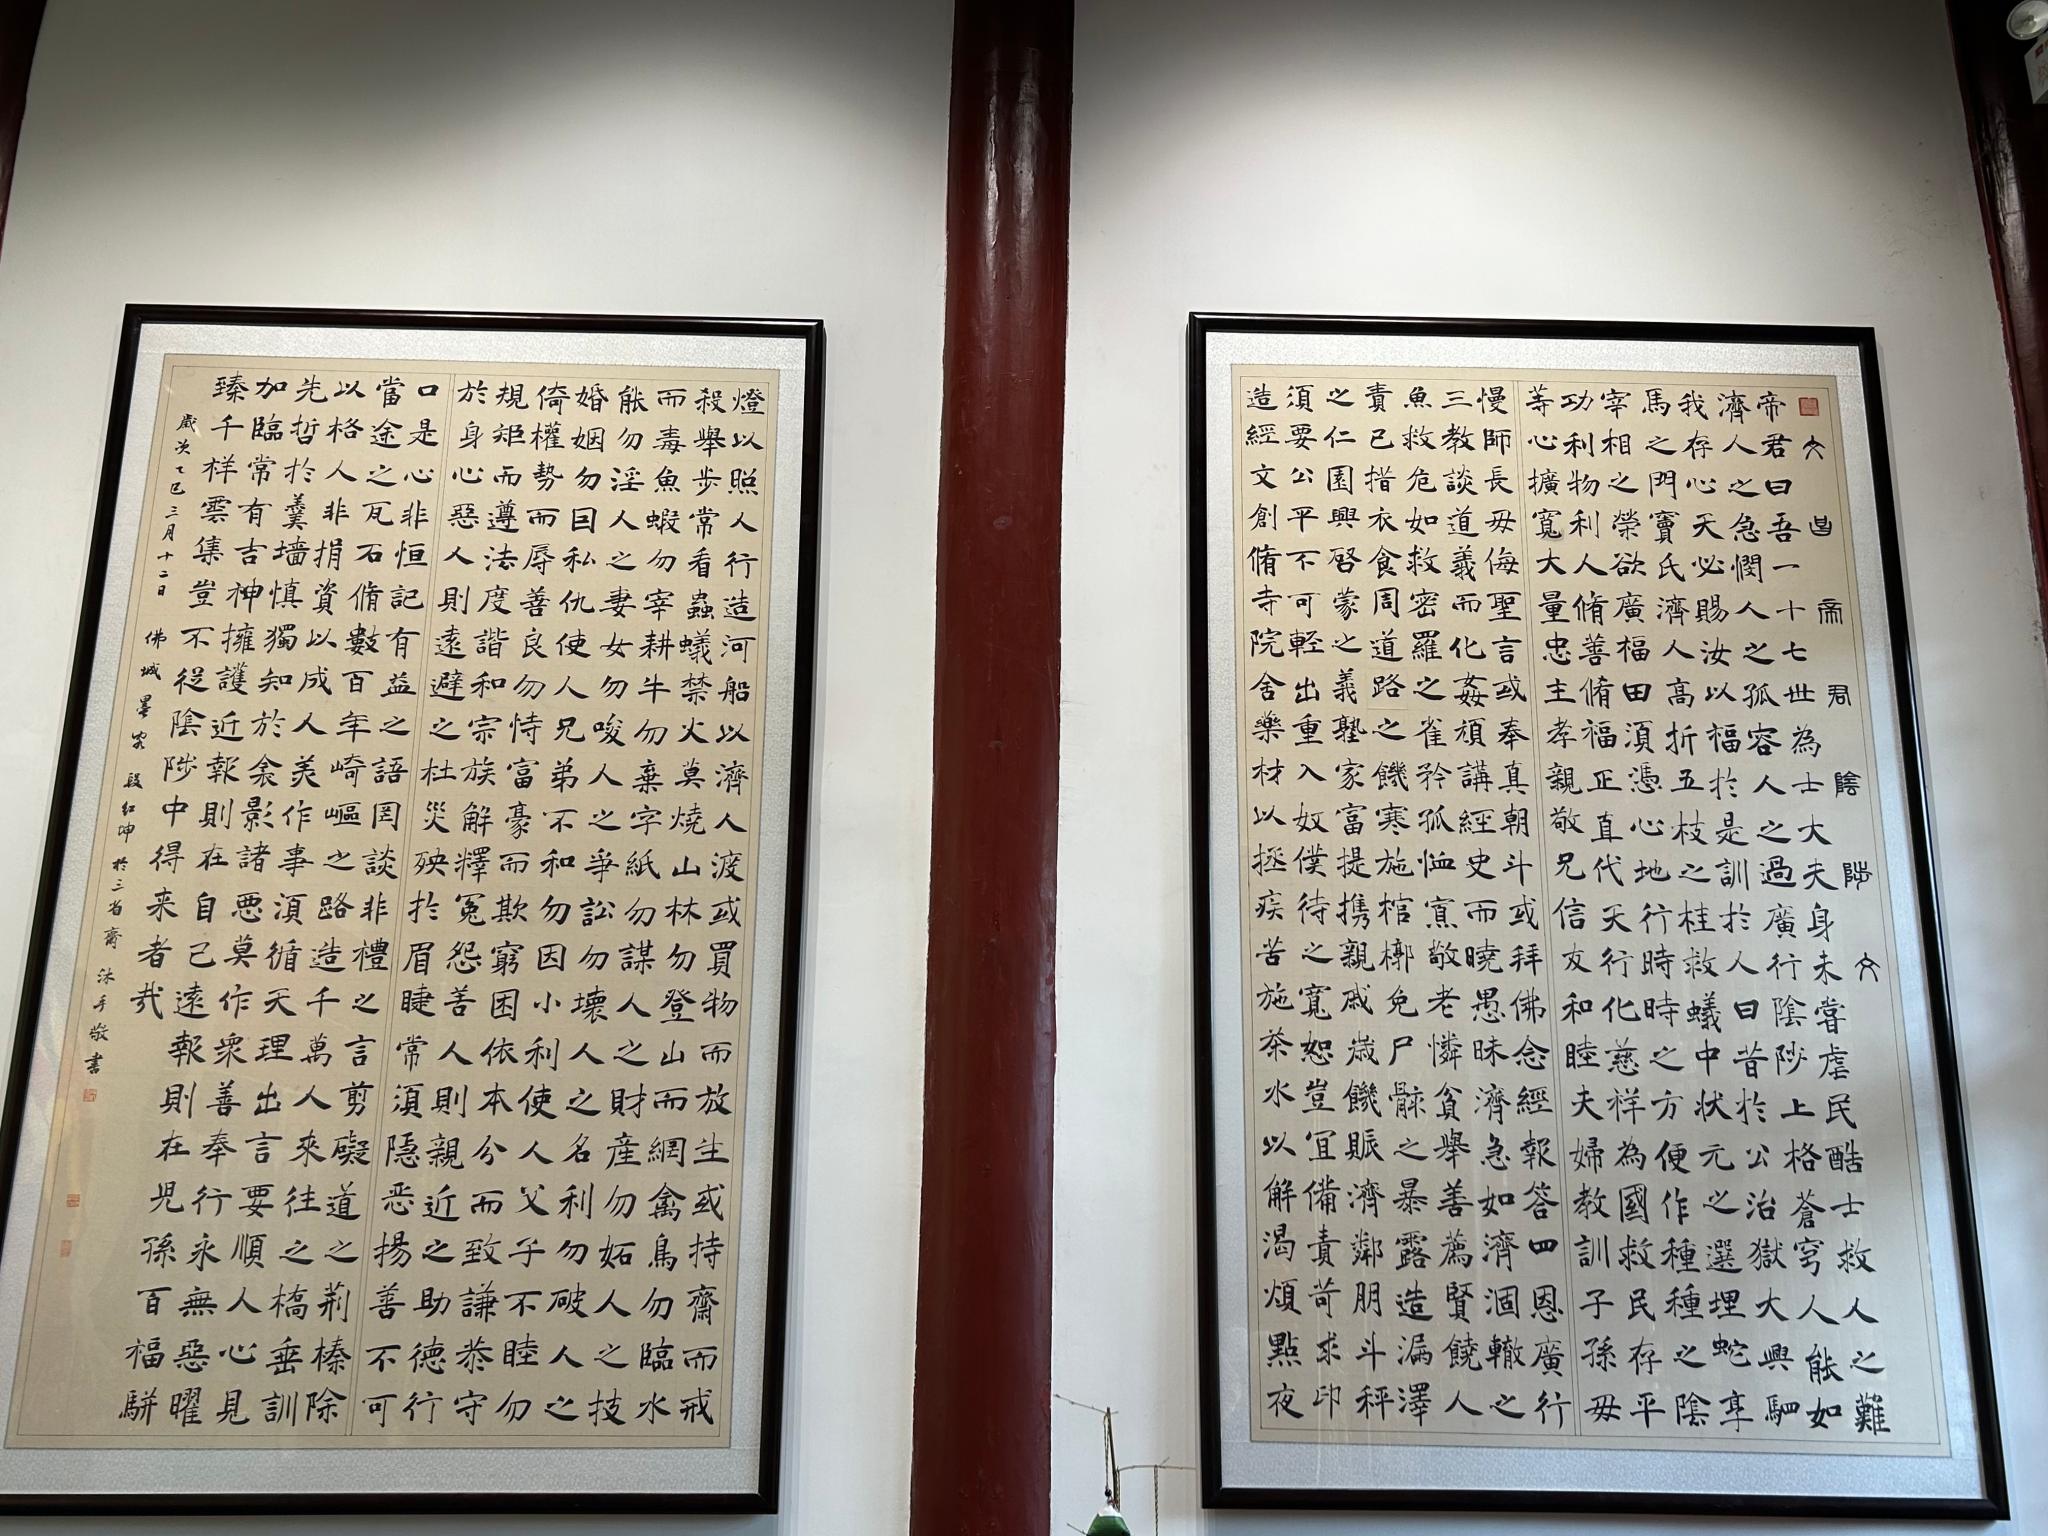 文昌帝君陰隲文
帝君曰吾一十七世為士大夫身未嘗虐民酷士救人之難
濟人之急憫人之孤容人之過廣行陰隲上格蒼穹人能如
我存心天必賜汝以福於是訓於人曰昔於公治獄大興駟
馬之門竇氏濟人高折五枝之桂救蟻中状元之選埋蛇享
宰相之榮欲廣福田須憑心地行時時之方便作種種之陰
功利物利人脩善脩福正直代天行化慈祥為國救民存平
等心擴寬大量忠主孝親敬兄信友和睦夫婦教訓子孫毋
慢師長毋侮聖言或奉真朝斗或拜佛念經報答四恩廣行
三教談道義而化姦頑講經史而曉愚昧濟急如濟涸轍之
魚救危如救密羅之雀矜孤恤寡敬老憐貧舉善薦賢饒人
責己措衣食周道路之饑寒施棺槨免尸骸之暴露造漏澤
之仁園興啓蒙之義塾家富提携親戚歲饑賑濟鄰朋斗秤
須要公平不可輕出重入奴僕待之寬恕豈宜備責苛求印
造經文創脩寺院舍藥材以拯疾苦施茶水以解渴煩點夜
燈以照人行造河船以濟人渡或買物而放生或持齋而戒
殺舉步常看蟲蟻禁火莫燒山林勿登山而網禽鳥勿臨水
而毒魚蝦勿宰耕牛勿棄字紙勿謀人之財產勿妬人之技
能勿淫人之妻女勿唆人之爭訟勿壞人之名利勿破人之
婚姻勿因私仇使人兄弟不和勿因小利使人父子不睦勿
倚權勢而辱善良勿恃富豪而欺窮困依本分而致謙恭守
規矩而遵法度諧和宗族解釋冤怨善人則親近之助德行
於身心惡人則遠避之杜災殃於眉睫常須隱惡揚善不可
口是心非恒記有益之語罔談非禮之言剪礙道之荊榛除
當途之瓦石脩數百年崎嶇之路造千萬人來往之橋垂訓
以格人非捐資以成人美作事須循天理出言要順人心見
先哲於羹墻慎獨知於衾影諸惡莫作眾善奉行永無惡曜
加臨常有吉神擁護近報則在自己遠報則在兒孫百福駢
臻千祥雲集豈不從陰隲中得来者哉
歲次乙巳三月十二日 佛城墨客 段紅坤 於三省齋 沐手敬書